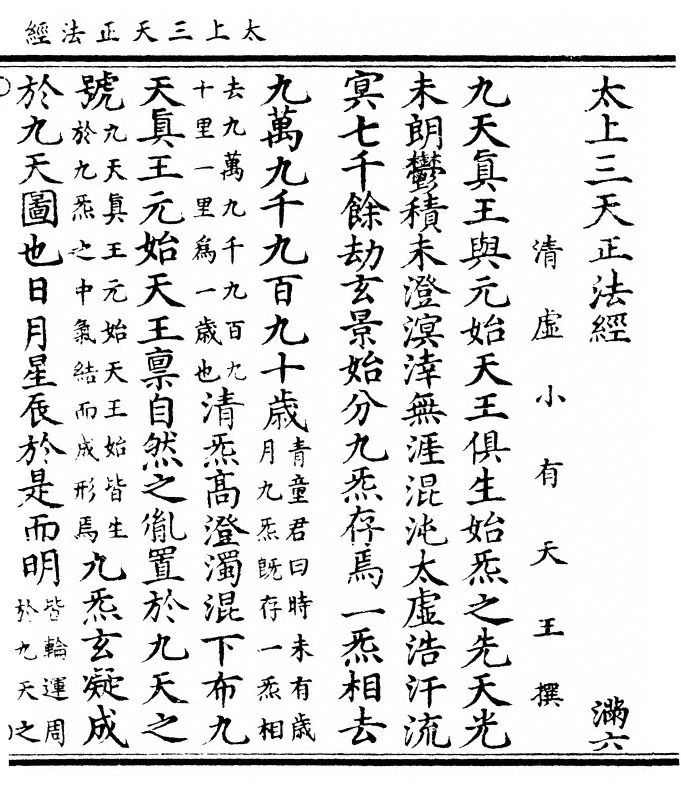 太上三天正法經
太上三天正法經 滿六
清虛小有天王撰
九天眞王與元始天王俱生始炁之先天光
未朗鬱積未澄溟涬無涯混沌太虛浩汗流
冥七千餘劫玄景始分九炁存焉一炁相去
九萬九千九百九十歲青童君曰時未有歲月九炁旣存一炁相
去九萬九千九百九十里一里爲一歲也清炁髙澄濁混下布九
天眞王元始天王禀自然之胤置於九天之
號九天眞王元始天王始皆生於九炁之中氣結而成形焉九炁玄凝成
於九天圖也日月星辰於是而明皆輪運周於九天之